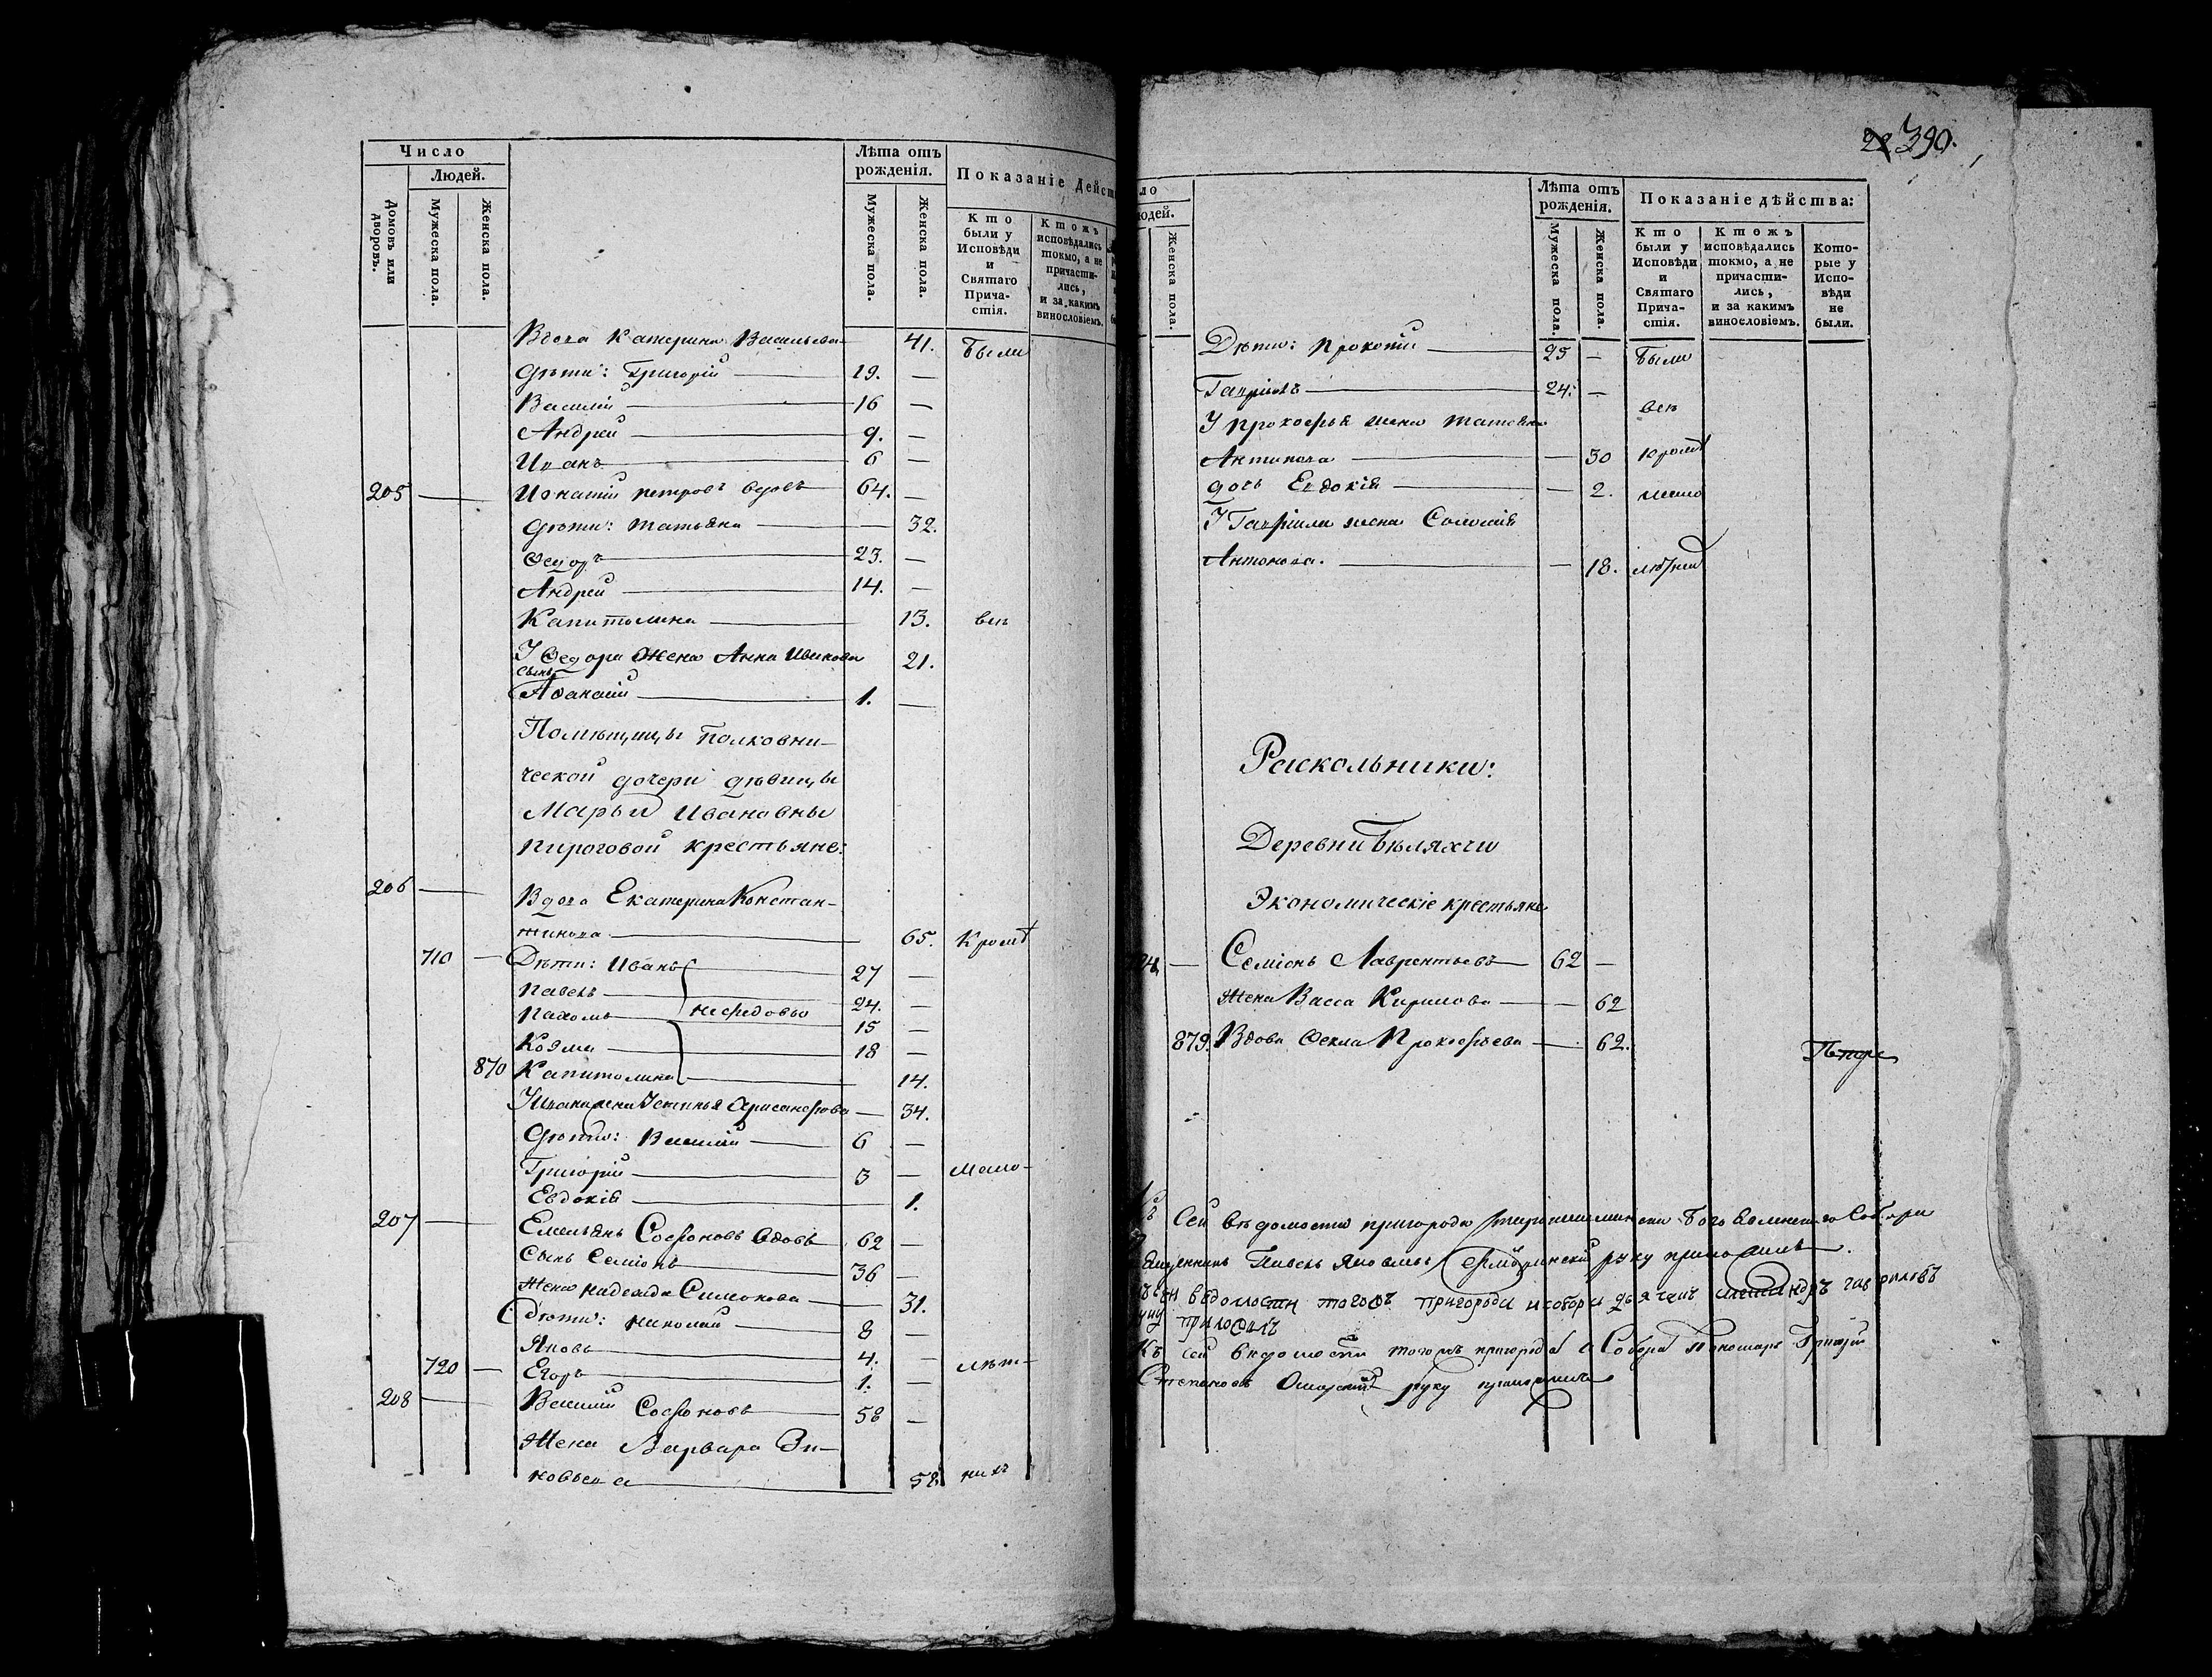 Число
Людей.
Домовъ или дворовъ.
Мужеска пола.
Женска пола.
Лѣта отъ рожденія.
Мужеска пола.
Женска пола.
Показаніе Дейст
Кто были у Исповѣди и Святаго Прича-стія.
Ктожъ исповѣдались токмо, а не причасти-лись, и за какимъ винословіемъ.
Вдова Катерина Васильева 41. Были
дѣти: Григорій 19. —
Василій 16 —
Андрей 9. —
Иванъ 6 —
205 — Игнатій петровъ вдовъ 64. —
дѣти: татьяна — 32.
Ѳедоръ 23. —
Андрей 14. —
Капитолина 13. всѣ
У Ѳедора жена Анна Иванова 21.
сынъ
Аѳанасій 1. —
Помѣщицы Полковни-
ческой дочери дѣвицы
Марьи Ивановны
пироговой крестьяне:
206 — Вдова Екатерина Констан-
тинова 65. Кромѣ
710 — Дѣти: Иванъ 27 —
павелъ 24. —
пахомъ 15 —
Козма 18 —
870 Капитолина 14.
34.
дѣти: Василій 6 —
Григорій 3 — мало-
Евдокія 1.
207 — Емельянъ Софоновъ вдовъ 62 —
сынъ Семіонъ 36 —
жена надежда Симонова 31.
дѣти: николай 8 —
Яковъ 4. —
720 — Егоръ 1. — лѣт-
208 — Василій Софоновъ 58 —
Жена Варвара Зи-
новьева 58 нихъ
22 390.
ло
юдей.
Женска пола.
Лѣта отъ рожденія.
Мужеска пола.
Женска пола.
Показаніе дѣйства:
Кто были у Исповѣди и Святаго Прича-стія.
Ктожъ исповѣдались токмо, а не причасти-лись, и за какимъ винословіемъ.
Кото-рые у Испо-вѣди не были.
Дѣти: прокопій 25 — Были
Гавріилъ 24. —
всѣ
У прокофья жена татьяна
— 30 кромѣ
дочь Евдокія — 2. мало
У Гавріила жена Соломія
Антонова. — 18. лѣтней
Раскольники:
Деревни Бѣляхчи
Экономическіе крестьяне
— Семіонъ Лаврентьевъ 62 —
жена Васса Кирилова — 62
879. Вдова Ѳекла Прокофьева — 62.
сей вѣдомости пригорода собора
Павелъ Яковлевъ руку приложилъ.
вѣдомости тогожъ пригорода и собора гавриловъ
приложилъ
Къ сей вѣдомости тогожъ пригорода Собора Пономарь Григорій
Степановъ руку приложилъ